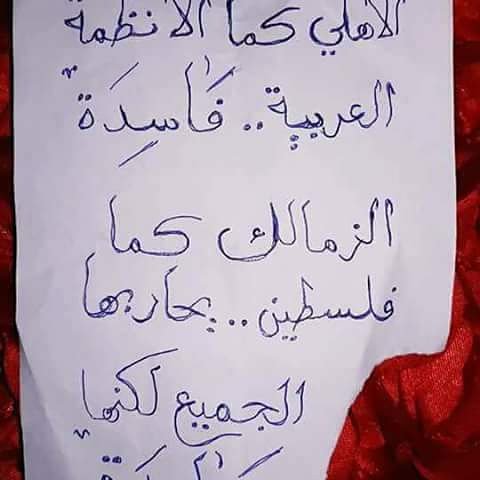 الأهلي كما الأنظمة
العربية.. فَاسِدَةٌ
الزمالك كما
فلسطين.. يحاربها
الجميع لكنها